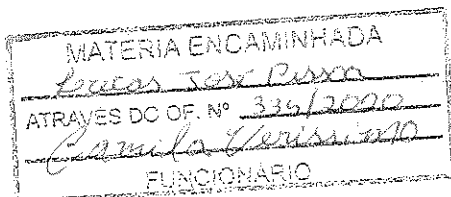 MATERIA ENCAMINHADA
Lucas José
ATRAVÉS DO OF. Nº 336/2020
Camila Verissimo
FUNCIONÁRIO